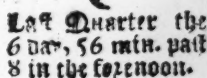 Laſt Quarter the
6 Day, 56 min. paſt
8 in the forenoon.